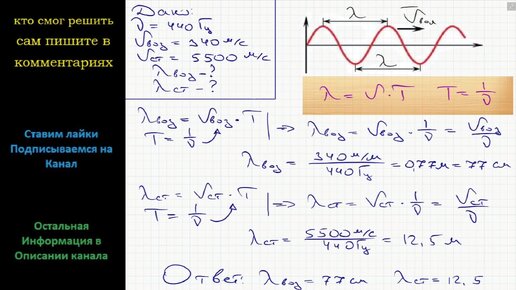 кто смог решить
сам пишите в
комментариях
Ставим лайки
Подписываемся на
Канал
Остальная
Информация в
Описании канала
Дано:
ν = 440 Гц
Vвоз = 340 м/с
Vст = 5500 м/с
λвоз - ?
λст - ?
λ
Vвол
λ
λ = V · T T = 1/ν
λвоз = Vвоз · T
T = 1/ν
=> λвоз = Vвоз · 1/ν = Vвоз/ν
λвоз = 340 м/м / 440 Гц = 0,77 м = 77 см
λст = Vст · T
T = 1/ν
=> λст = Vст · 1/ν = Vст/ν
λст = 5500 м/с / 440 Гц = 12,5 м
Ответ: λвоз = 77 см λст = 12,5